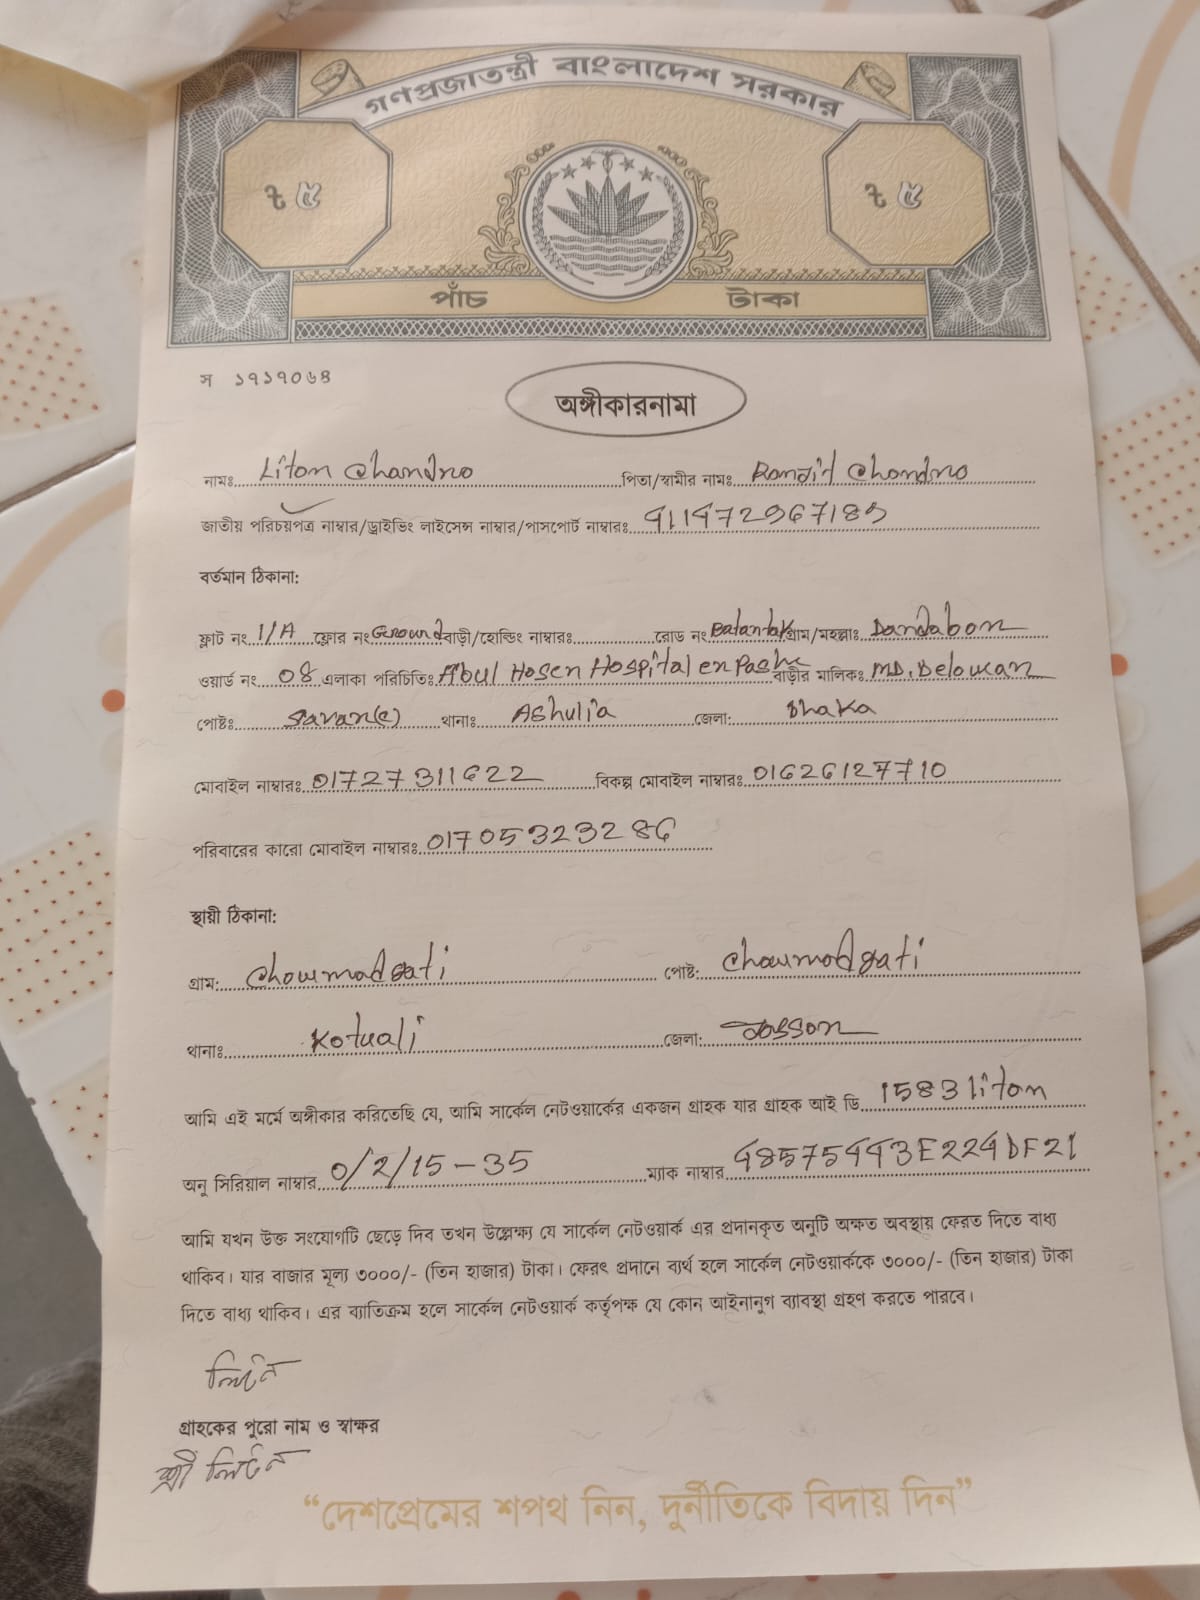 গণপ্রজাতন্ত্রী বাংলাদেশ সরকার
৳ ৫ ৳ ৫
পাঁচ টাকা
স ১৭১৭০৬৪
অঙ্গীকারনামা
নামঃ Liton Chandro পিতা/স্বামীর নামঃ Ronjit Chondro
জাতীয় পরিচয়পত্র নাম্বার/ড্রাইভিং লাইসেন্স নাম্বার/পাসপোর্ট নাম্বারঃ 411472967189
বর্তমান ঠিকানা:
ফ্লাট নং 1/A ফ্লোর নং Ground বাড়ী/হোল্ডিং নাম্বারঃ রোড নং গ্রাম/মহল্লাঃ Dandabon
ওয়ার্ড নং 08 এলাকা পরিচিতিঃ Abul Hosen Hospital en Pashe বাড়ীর মালিকঃ MD. Delowan
পোষ্টঃ Savar(c) থানাঃ Ashulia জেলা: Dhaka
মোবাইল নাম্বারঃ 01727311622 বিকল্প মোবাইল নাম্বারঃ 01626127710
পরিবারের কারো মোবাইল নাম্বারঃ 01705323286
স্থায়ী ঠিকানা:
গ্রাম: Chowmadgati পোষ্ট: Chowmadgati
থানাঃ Kotuali জেলা: Josson
আমি এই মর্মে অঙ্গীকার করিতেছি যে, আমি সার্কেল নেটওয়ার্কের একজন গ্রাহক যার গ্রাহক আই ডি 1583liton
অনু সিরিয়াল নাম্বার 0/2/15-35 ম্যাক নাম্বার 48575443E224DF21
আমি যখন উক্ত সংযোগটি ছেড়ে দিব তখন উল্লেক্ষ্য যে সার্কেল নেটওয়ার্ক এর প্রদানকৃত অনুটি অক্ষত অবস্থায় ফেরত দিতে বাধ্য
থাকিব। যার বাজার মূল্য ৩০০০/- (তিন হাজার) টাকা। ফেরৎ প্রদানে ব্যর্থ হলে সার্কেল নেটওয়ার্ককে ৩০০০/- (তিন হাজার) টাকা
দিতে বাধ্য থাকিব। এর ব্যাতিক্রম হলে সার্কেল নেটওয়ার্ক কর্তৃপক্ষ যে কোন আইনানুগ ব্যাবস্থা গ্রহণ করতে পারবে।
লিটন
গ্রাহকের পুরো নাম ও স্বাক্ষর
শ্রী লিটন
“দেশপ্রেমের শপথ নিন, দুর্নীতিকে বিদায় দিন”